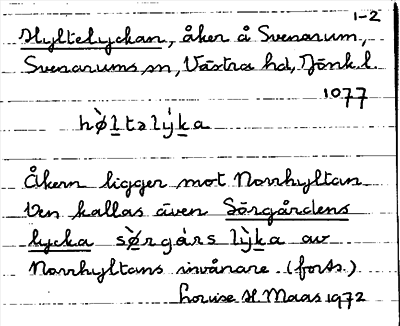 1-2
Hyltelyckan, åker å Svenarum,
Svenarums sn, Västra hd, Jönk. l.
1077
hø̀ḻtəlýḵa
Åkern ligger mot Norrhyltan
Den kallas även Sörgårdens
lycka sø̀rgårs lỳḵa av
Norrhyltans invånare. (forts.)
Louise H. Maas 1972